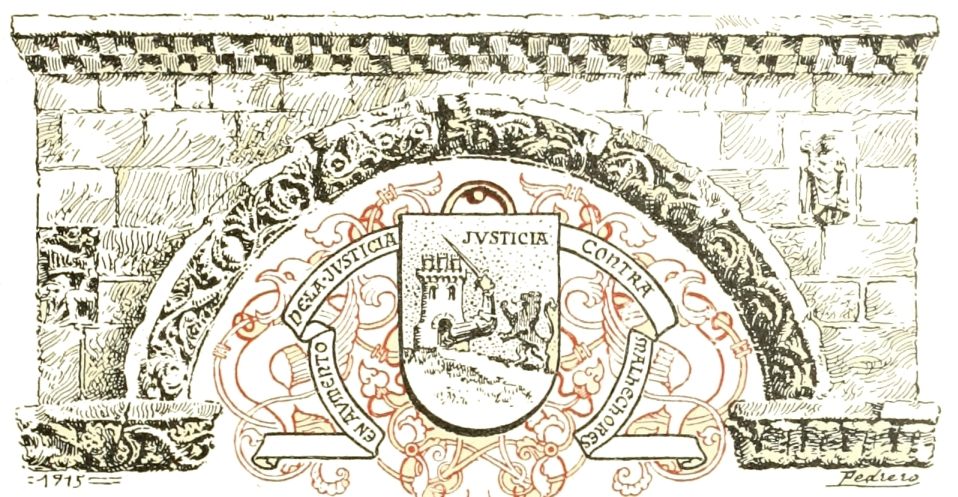 JVSTICIA
EN AVMENTO
DE LA JVSTICIA
CONTRA
MALHECHORES
=1915=
Pedrero